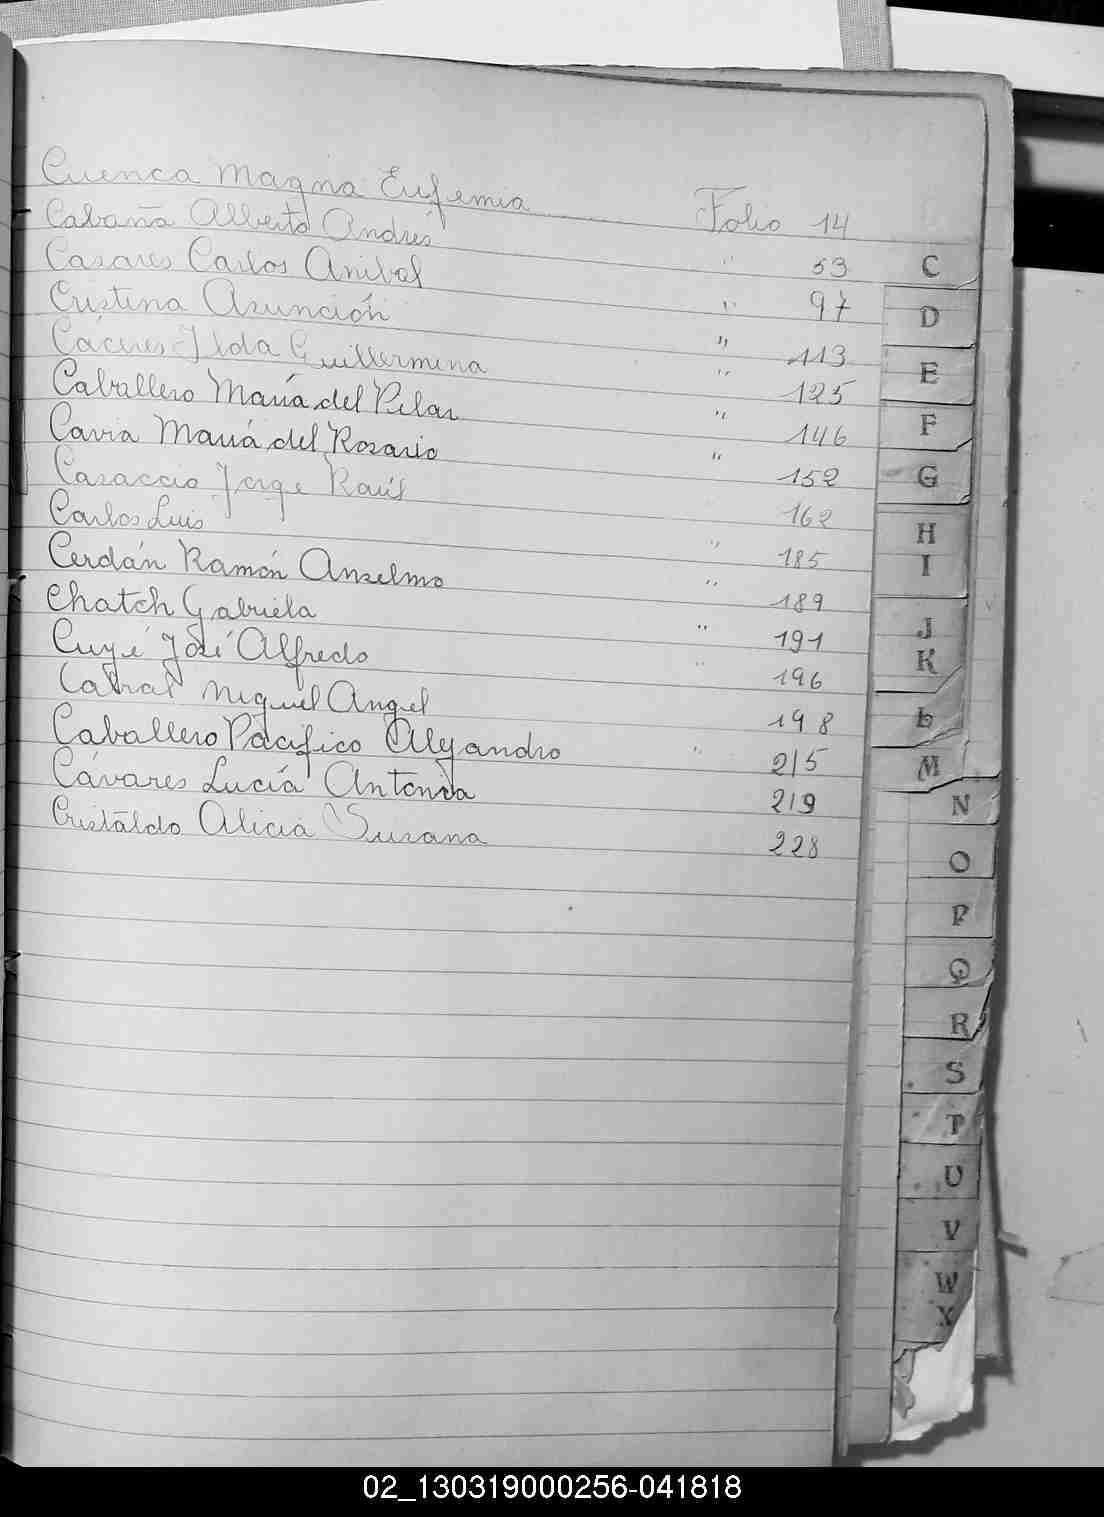 Cuenca Magna Eufemia Folio 14
Cabaña Alberto Andrés " 53
Casares Carlos Anibal " 97
Cristina Asunción " 113
Cáceres Ilda Guillermina " 125
Caballero María del Pilar " 146
Cavia María del Rosario " 152
Casaccio Jorge Raúl 162
Carlos Luis " 185
Cerdán Ramón Anselmo " 189
Chatch Gabriela " 191
Cuyé José Alfredo " 196
Cabral Miguel Angel 198
Caballero Pacífico Alejandro " 215
Cávares Lucía Antonia 219
Cristaldo Alicia Susana 228
C
D
E
F
G
H
I
J
K
L
M
N
O
P
Q
R
S
T
U
V
W
X
02_130319000256-041818